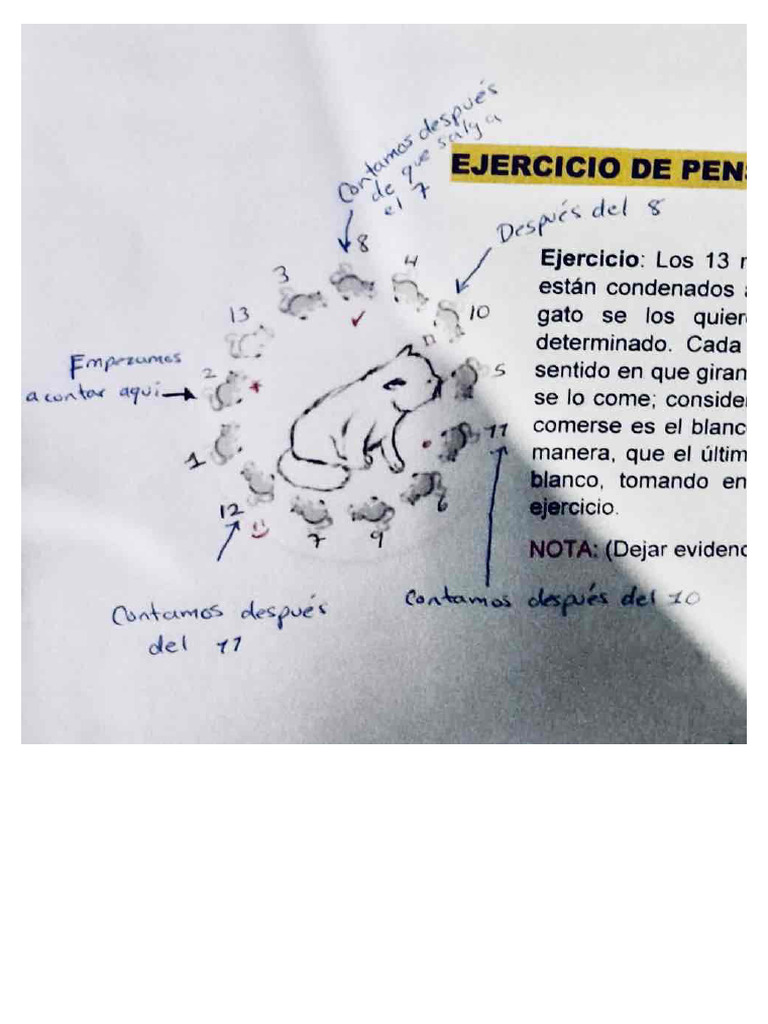 Contamos después
de que salga
el 7
EJERCICIO DE PEN
Después del 8
Ejercicio: Los 13
están condenados
gato se los
determinado. Cada
sentido en que giran
se lo come;
comerse es el
manera, que el
blanco, tomando en
ejercicio.
NOTA: (Dejar
8
3
4
13
10
Empezamos
a contar aquí
2
5
1
11
12
6
7
9
Contamos después
del 11
Contamos después del 10